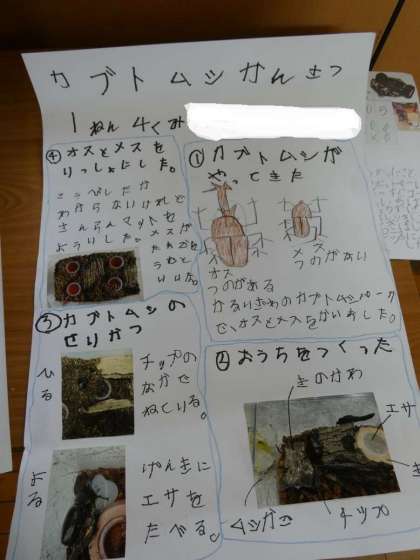 カブトムシかんさつ
1ねん4くみ
① カブトムシが
やってきた
オス
つのがある
メス
つのがない
かるいさわのカブトムシパーク
で、オスとメスをかいました。
② おうちをつくった
きのかわ
エサ
チップ
ムシかご
③ カブトムシの
せいかつ
ひる
チップの
なかで
ねている。
よる
げんきに
エサを
たべる。
④ オスとメスを
いっしょにした。
こうびしたか
わからないけれど
さんらんマットを
よういした。メスが
たまごを
うむと
いいな。